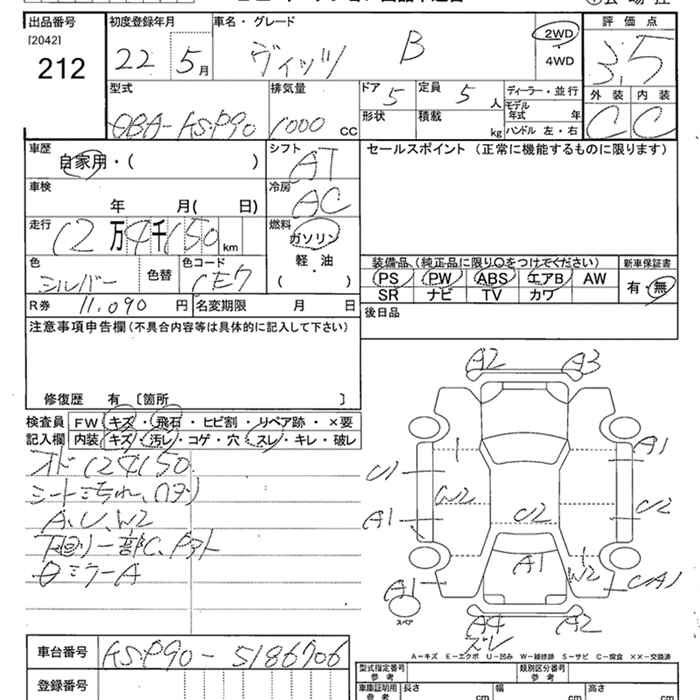 出品番号 初度登録年月 車名・グレード 評価点
[2042]
212
22 5月 ヴィッツ B 2WD 4WD 3.5
型式 排気量 ドア 定員 ディーラー・並行 外装 内装
DBA-KSP90 1000 CC 5 5人 モデル年式 年 C C
形状 積載 kg ハンドル 左・右
車歴 シフト セールスポイント (正常に機能するものに限ります)
自家用・( ) AT
車検 冷房
年 月( 日) AC
走行 燃料
12万4千150km ガソリン
軽・油
( )
色 色替 色コード
シルバー 1E7
装備品 (純正品に限り○をつけてください) 新車保証書
PS PW ABS エアB AW 有・無
SR ナビ TV カワ
R券 11,090円 名変期限 月 日
後日品
注意事項申告欄(不具合内容等は具体的に記入して下さい)
修復歴 有 [箇所 ]
検査員 FW キズ・飛石・ヒビ割・リペア跡・×要
記入欄 内装 キズ・汚レ・コゲ・穴・スレ・キレ・破レ
オド 124150
A、U、W2
ミラーA
A2 A3
U1 A1
W2 U2
A1 U2
A1 W2
A1 CA1
スペア
A4 A2
ズレ
A-キズ E-エクボ U-凹み W-補修跡 S-サビ C-腐食 ××-交換済
車台番号 KSP90-5186706
登録番号
型式指定番号 参考 類別区分番号 参考
車庫証明用 参考 長さ cm 幅 cm 高さ cm